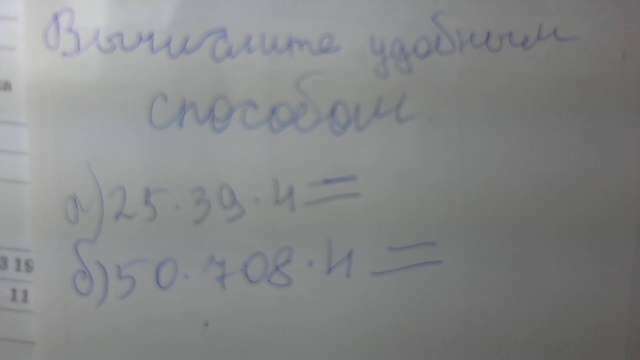 Вычислите удобным
способом.
а) 25·39·4=
б) 50·708·4=
3 15
11